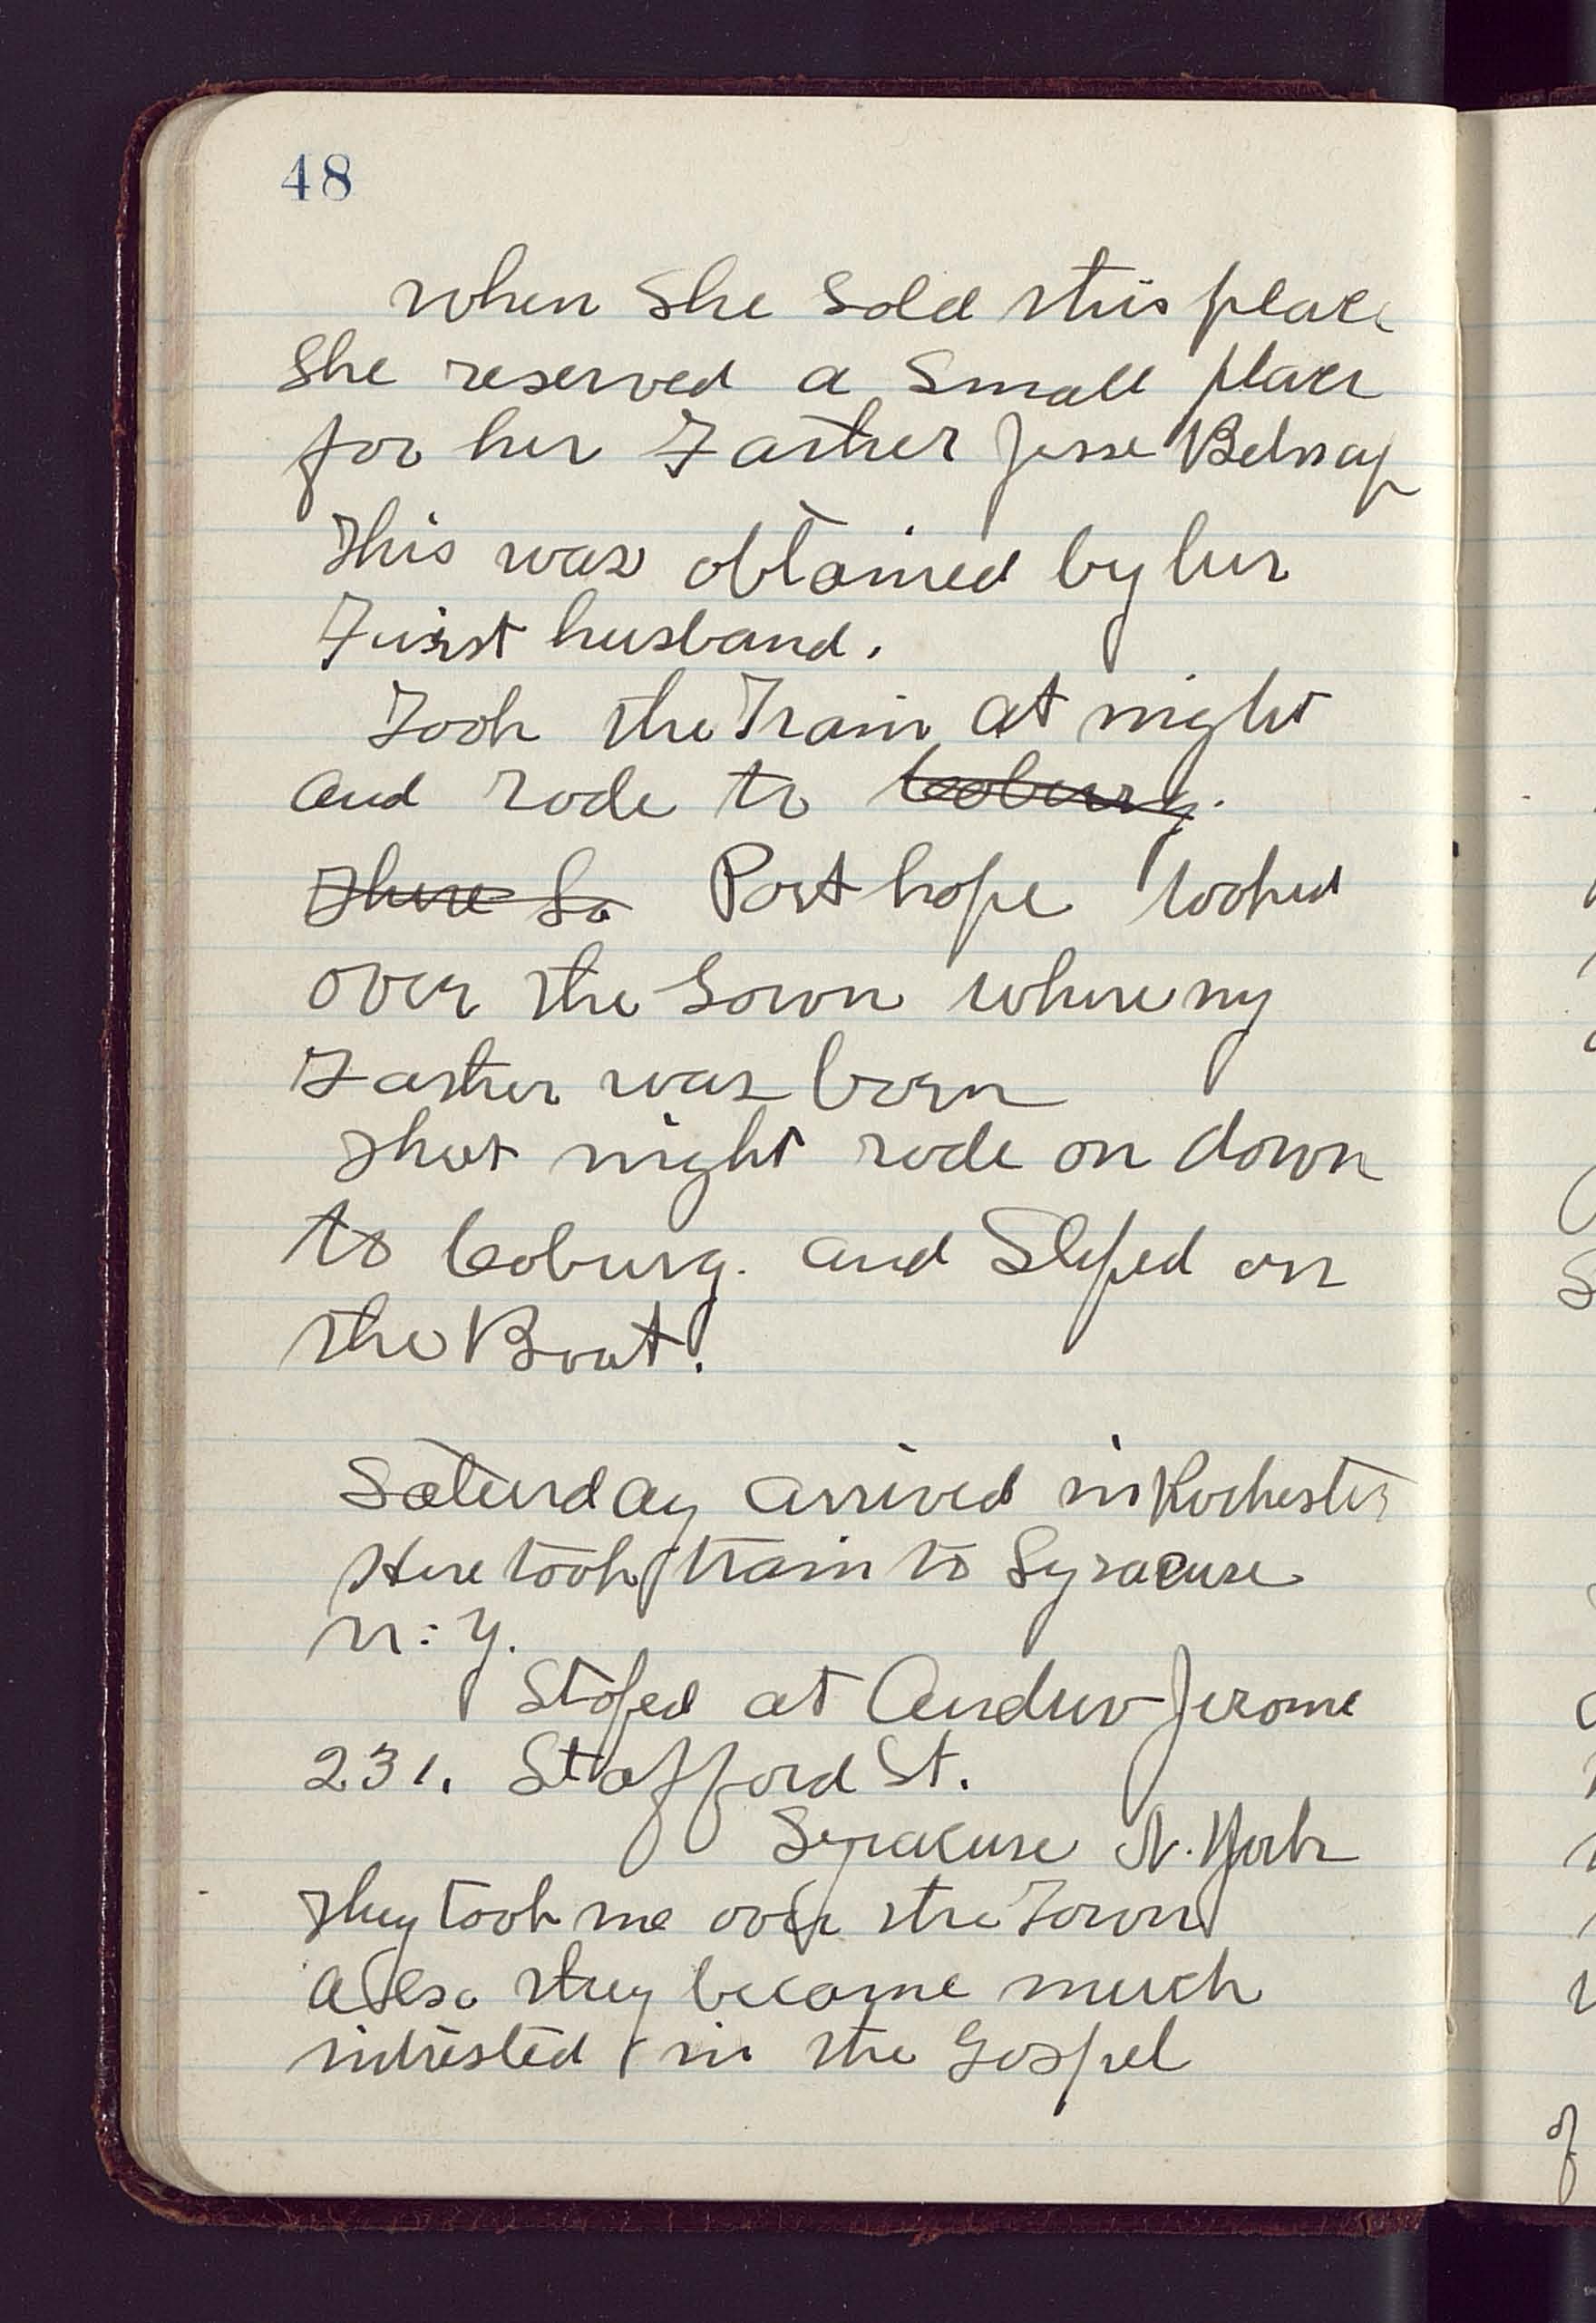 48
when she sold this place
She reserved a small place
for her Father Jesse Belnap
This was obtained by her
First husband.
Took the Train at night
and rode to Coburg.
There So Port hope looked
over the Town where my
Father was born
that night rode on down
to Coburg. and Sleped on
the Boat.
Saturday arrived in Rochester
Here took train to Syracuse
N. Y.
Stoped at Andrew Jerome
231. Stafford St.
Syracuse N. York
They took me over the Town
also they became much
intrested in the Gospel